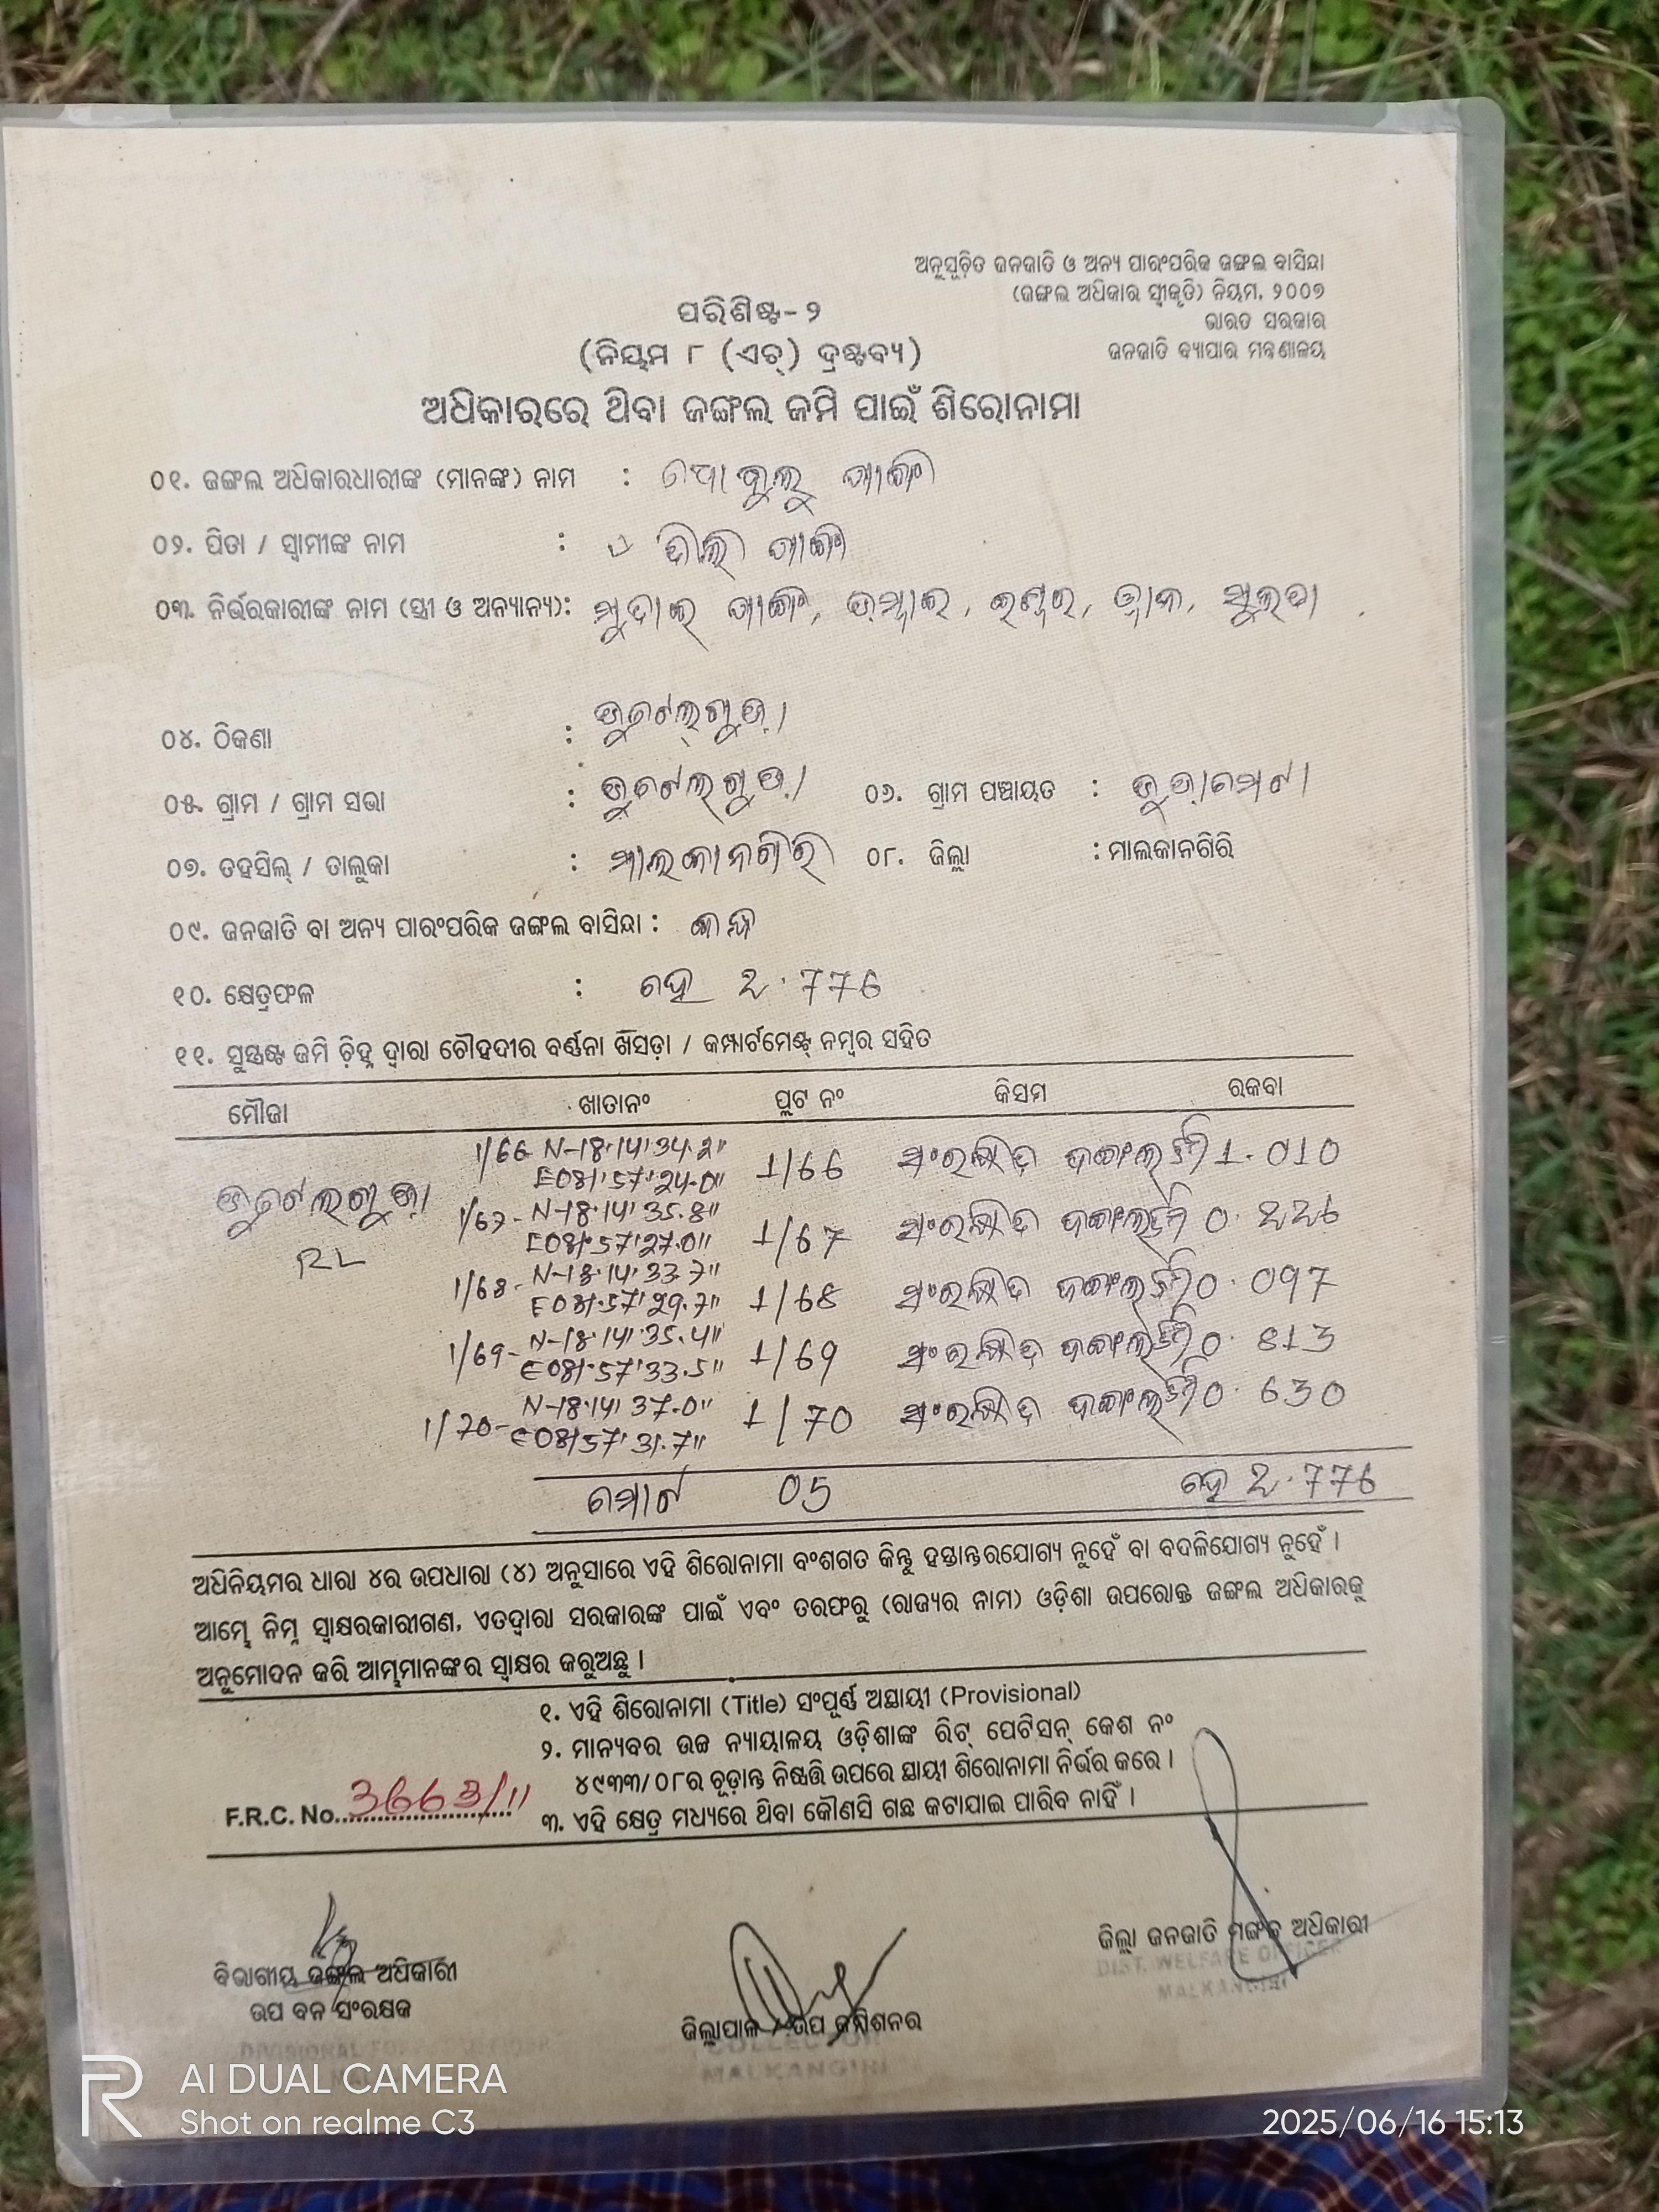 ଅନୁସୂଚିତ ଜନଜାତି ଓ ଅନ୍ୟ ପାରଂପରିକ ଜଙ୍ଗଲ ବାସିନ୍ଦା
(ଜଙ୍ଗଲ ଅଧିକାର ସ୍ୱୀକୃତି) ନିୟମ, ୨୦୦୭
ଭାରତ ସରକାର
ଜନଜାତି ବ୍ୟାପାର ମନ୍ତ୍ରଣାଳୟ
ପରିଶିଷ୍ଟ-୨
(ନିୟମ ୮ (ଏଚ୍) ଦ୍ରଷ୍ଟବ୍ୟ)
ଅଧିକାରରେ ଥିବା ଜଙ୍ଗଲ ଜମି ପାଇଁ ଶିରୋନାମା
୦୧. ଜଙ୍ଗଲ ଅଧିକାରଧାରୀଙ୍କ (ମାନଙ୍କ) ନାମ :
୦୨. ପିତା / ସ୍ୱାମୀଙ୍କ ନାମ :
୦୩. ନିର୍ଭରକାରୀଙ୍କ ନାମ (ସ୍ତ୍ରୀ ଓ ଅନ୍ୟାନ୍ୟ):
୦୪. ଠିକଣା :
୦୫. ଗ୍ରାମ / ଗ୍ରାମ ସଭା : ୦୬. ଗ୍ରାମ ପଞ୍ଚାୟତ :
୦୭. ତହସିଲ୍ / ତାଲୁକା : ମାଲକାନଗିରି ୦୮. ଜିଲ୍ଲା : ମାଲକାନଗିରି
୦୯. ଜନଜାତି ବା ଅନ୍ୟ ପାରଂପରିକ ଜଙ୍ଗଲ ବାସିନ୍ଦା :
୧୦. କ୍ଷେତ୍ରଫଳ : ହେ 2.776
୧୧. ସୁସ୍ପଷ୍ଟ ଜମି ଚିହ୍ନ ଦ୍ୱାରା ଚୌହଦୀର ବର୍ଣ୍ଣନା ଖସଡ଼ା / କମ୍ପାର୍ଟମେଣ୍ଟ୍ ନମ୍ବର ସହିତ
ମୌଜା ଖାତାନଂ ପ୍ଲଟ ନଂ କିସମ ରକବା
1/66 N-18°14'34.2" 1/66 ସଂରକ୍ଷିତ ଜଙ୍ଗଲ ଜମି 1.010
E081°57'24.0"
1/67- N-18°14'35.8" 1/67 ସଂରକ୍ଷିତ ଜଙ୍ଗଲ ଜମି 0.226
E081°57'27.0"
RL
1/68- N-18°14'33.7" 1/68 ସଂରକ୍ଷିତ ଜଙ୍ଗଲ ଜମି 0.097
E081°57'29.7"
1/69- N-18°14'35.4" 1/69 ସଂରକ୍ଷିତ ଜଙ୍ଗଲ ଜମି 0.813
E081°57'33.5"
1/70- N-18°14'37.0" 1/70 ସଂରକ୍ଷିତ ଜଙ୍ଗଲ ଜମି 0.630
E081°57'31.7"
ମୋଟ 05 ହେ 2.776
ଅଧିନିୟମର ଧାରା ୪ର ଉପଧାରା (୪) ଅନୁସାରେ ଏହି ଶିରୋନାମା ବଂଶଗତ କିନ୍ତୁ ହସ୍ତାନ୍ତରଯୋଗ୍ୟ ନୁହେଁ ବା ବଦଳିଯୋଗ୍ୟ ନୁହେଁ ।
ଆମ୍ଭେ ନିମ୍ନ ସ୍ୱାକ୍ଷରକାରୀଗଣ, ଏତଦ୍ୱାରା ସରକାରଙ୍କ ପାଇଁ ଏବଂ ତରଫରୁ (ରାଜ୍ୟର ନାମ) ଓଡ଼ିଶା ଉପରୋକ୍ତ ଜଙ୍ଗଲ ଅଧିକାରକୁ
ଅନୁମୋଦନ କରି ଆମ୍ଭମାନଙ୍କର ସ୍ୱାକ୍ଷର କରୁଅଛୁ ।
୧. ଏହି ଶିରୋନାମା (Title) ସଂପୂର୍ଣ୍ଣ ଅସ୍ଥାୟୀ (Provisional)
୨. ମାନ୍ୟବର ଉଚ୍ଚ ନ୍ୟାୟାଳୟ ଓଡ଼ିଶାଙ୍କ ରିଟ୍ ପେଟିସନ୍ କେଶ ନଂ
୪୯୩୩/୦୮ର ଚୂଡ଼ାନ୍ତ ନିଷ୍ପତ୍ତି ଉପରେ ସ୍ଥାୟୀ ଶିରୋନାମା ନିର୍ଭର କରେ ।
F.R.C. No. 3663/11
୩. ଏହି କ୍ଷେତ୍ର ମଧ୍ୟରେ ଥିବା କୌଣସି ଗଛ କଟାଯାଇ ପାରିବ ନାହିଁ ।
ଜିଲ୍ଲା ଜନଜାତି ମଙ୍ଗଳ ଅଧିକାରୀ
DIST. WELFARE OFFICER
MALKANGIRI
ବିଭାଗୀୟ ଜଙ୍ଗଲ ଅଧିକାରୀ
ଉପ ବନ ସଂରକ୍ଷକ
ଜିଲ୍ଲାପାଳ / ଉପ କମିଶନର
COLLECTOR
MALKANGIRI
AI DUAL CAMERA
Shot on realme C3
2025/06/16 15:13